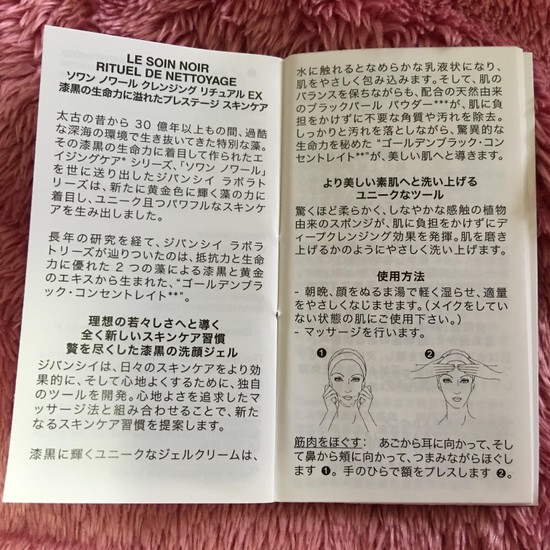 LE SOIN NOIR
RITUEL DE NETTOYAGE
ソワン ノワール クレンジング リチュアル EX
漆黒の生命力に溢れたプレステージ スキンケア
太古の昔から 30 億年以上もの間、過酷
な深海の環境で生き抜いてきた特別な藻。
その漆黒の生命力に着目して作られたエ
イジングケア* シリーズ、「ソワン ノワール」
を世に送り出したジバンシイ ラボラト
リーズは、新たに黄金色に輝く藻の力に
着目し、ユニーク且つパワフルなスキンケ
アを生み出しました。
長年の研究を経て、ジバンシイ ラボラ
トリーズが辿りついたのは、抵抗力と生命
力に優れた 2 つの藻による漆黒と黄金
のエキスから生まれた、“ゴールデンブラ
ック・コンセントレイト**”。
理想の若々しさへと導く
全く新しいスキンケア習慣
贅を尽くした漆黒の洗顔ジェル
ジバンシイは、日々のスキンケアをより効
果的に、そして心地よくするために、独自
のツールを開発。心地よさを追求したマ
ッサージ法と組み合わせることで、新た
なるスキンケア習慣を提案します。
漆黒に輝くユニークなジェルクリームは、
水に触れるとなめらかな乳液状になり、
肌をやさしく包み込みます。そして、肌の
バランスを保ちながらも、配合の天然由来
のブラックパール パウダー***が、肌に負
担をかけずに不要な角質や汚れを除去。
しっかりと汚れを落としながら、驚異的な
生命力を秘めた “ゴールデンブラック・コン
セントレイト**”が、美しい肌へと導きます。
より美しい素肌へと洗い上げる
ユニークなツール
驚くほど柔らかく、しなやかな感触の植物
由来のスポンジが、肌に負担をかけずにデ
ィープクレンジング効果を発揮。肌を磨き
上げるかのようにやさしく洗い上げます。
使用方法
- 朝晩、顔をぬるま湯で軽く湿らせ、適量
をやさしくなじませます。（メイクをしてい
ない状態の肌にご使用下さい。）
- マッサージを行います。
❶ ❷
筋肉をほぐす： あごから耳に向かって、そし
て鼻から頬に向かって、つまみながらほぐし
ます ❶。手のひらで額をプレスします ❷。